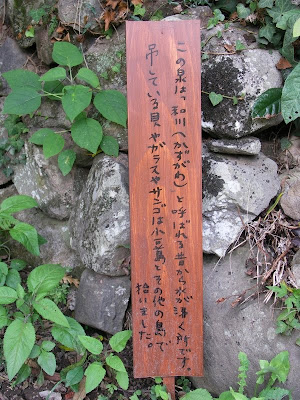 この泉は、和川(かずがわ)と呼ばれる昔から水が湧く所です。
吊している貝やガラスやサンゴは小豆島とその他の島で
拾いました。